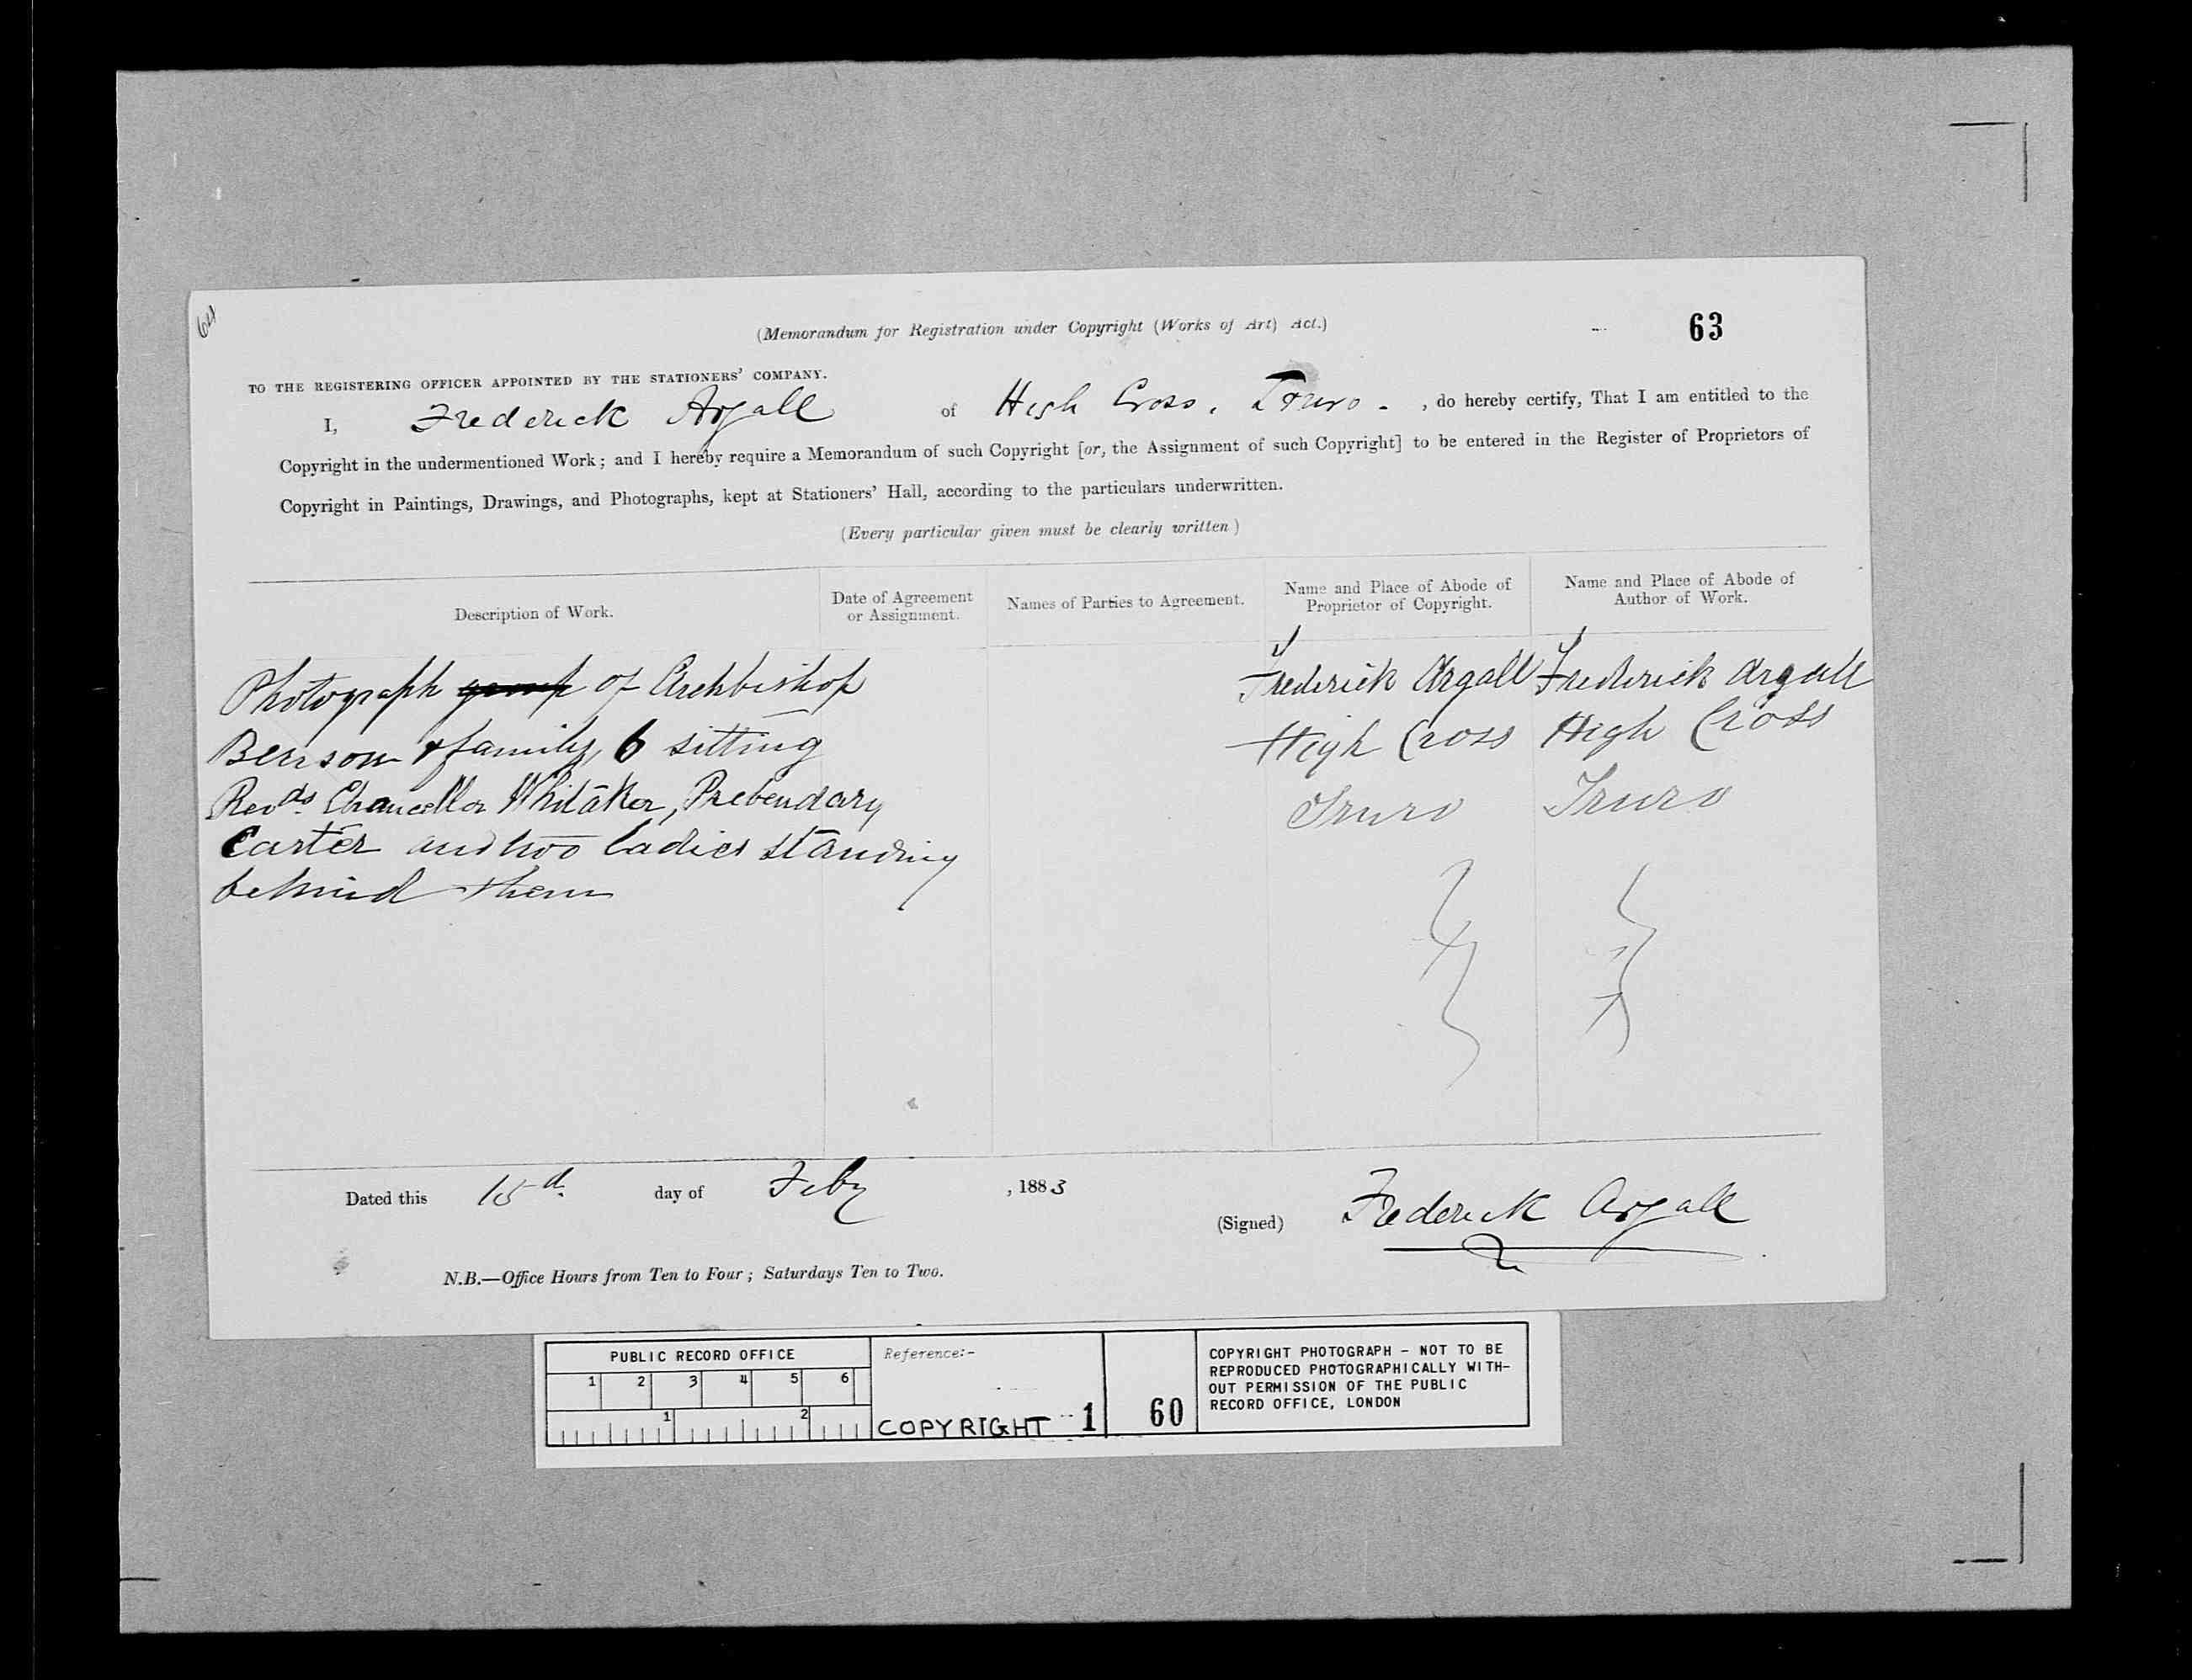 64
(Memorandum for Registration under Copyright (Works of Art) Act.)
63
TO THE REGISTERING OFFICER APPOINTED BY THE STATIONERS' COMPANY.
I, Frederick Argall of High Cross, Truro. , do hereby certify, That I am entitled to the
Copyright in the undermentioned Work; and I hereby require a Memorandum of such Copyright [or, the Assignment of such Copyright] to be entered in the Register of Proprietors of
Copyright in Paintings, Drawings, and Photographs, kept at Stationers' Hall, according to the particulars underwritten.
(Every particular given must be clearly written)
Description of Work.
Date of Agreement
or Assignment.
Names of Parties to Agreement.
Name and Place of Abode of
Proprietor of Copyright.
Name and Place of Abode of
Author of Work.
Photograph group of Archbishop
Benson & family, 6 sitting
Revds. Chancellor Whitaker, Prebendary
Carter and two ladies standing
behind them
Frederick Argall
High Cross
Truro
Frederick Argall
High Cross
Truro
Dated this 15 day of Feby , 1883
(Signed) Frederick Argall
N.B.—Office Hours from Ten to Four; Saturdays Ten to Two.
PUBLIC RECORD OFFICE
1 2 3 4 5 6
1 2
Reference:-
COPYRIGHT 1
60
COPYRIGHT PHOTOGRAPH - NOT TO BE
REPRODUCED PHOTOGRAPHICALLY WITH-
OUT PERMISSION OF THE PUBLIC
RECORD OFFICE, LONDON